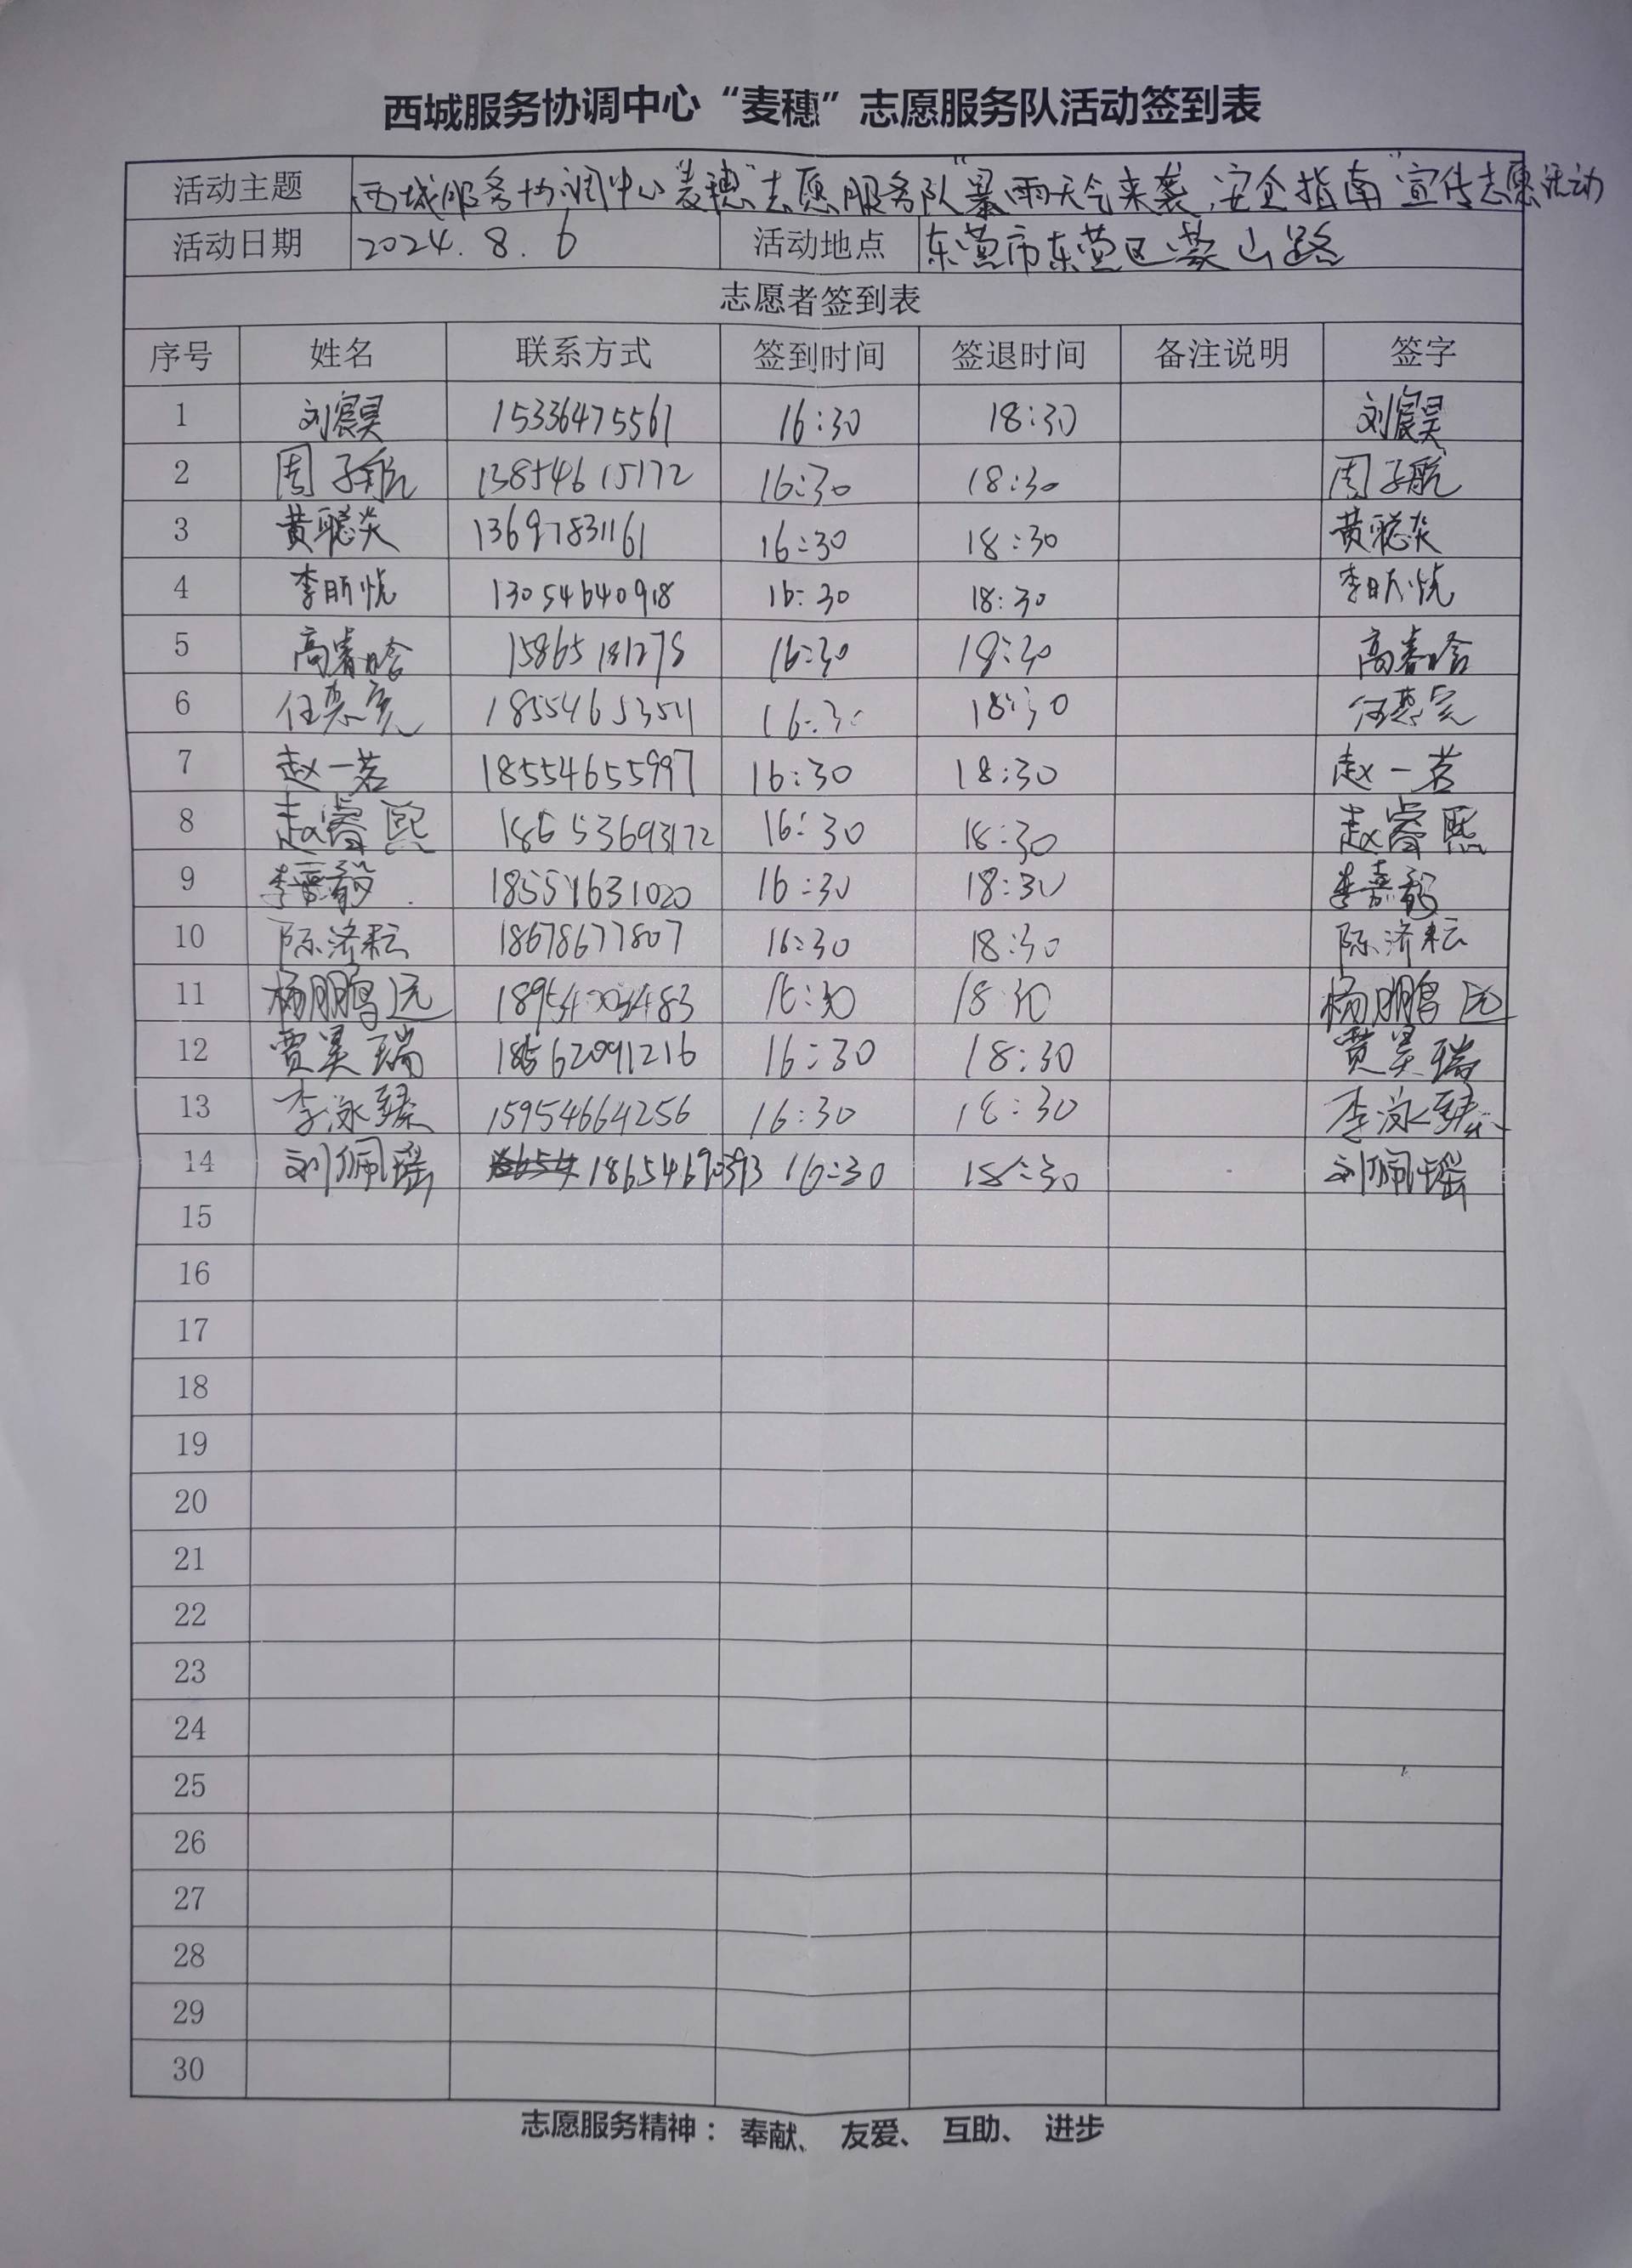 西城服务协调中心“麦穗”志愿服务队活动签到表
活动主题 西城服务协调中心“麦穗”志愿服务队“暴雨天气来袭,安全指南”宣传志愿活动
活动日期 2024.8.6 活动地点 东营市东营区蒙山路
志愿者签到表
序号 姓名 联系方式 签到时间 签退时间 备注说明 签字
1 刘宸昊 15336475561 16:30 18:30 刘宸昊
2 周子航 13854615172 16:30 18:30 周子航
3 黄聪炎 13697831161 16:30 18:30 黄聪炎
4 李昕悦 13054640918 16:30 18:30 李昕悦
5 高睿晗 15865181275 16:30 18:30 高睿晗
6 18554653511 16:30 18:30
7 赵一若 18554655997 16:30 18:30 赵一若
8 赵睿熙 18653693172 16:30 18:30 赵睿熙
9 李嘉毅 18554631020 16:30 18:30 李嘉毅
10 陈济耘 18678677807 16:30 18:30 陈济耘
11 杨鹏远 16:30 18:30 杨鹏远
12 贾昊瑞 18562091216 16:30 18:30 贾昊瑞
13 李泳臻 15954664256 16:30 18:30 李泳臻
14 刘佩瑶 18654690393 16:30 18:30 刘佩瑶
15
16
17
18
19
20
21
22
23
24
25
26
27
28
29
30
志愿服务精神： 奉献、 友爱、 互助、 进步